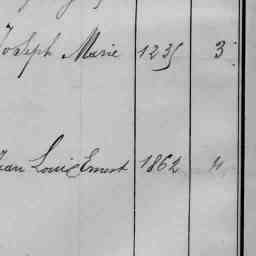 Joseph Marie 1235 3
Jean Louis Ernest 1862 4